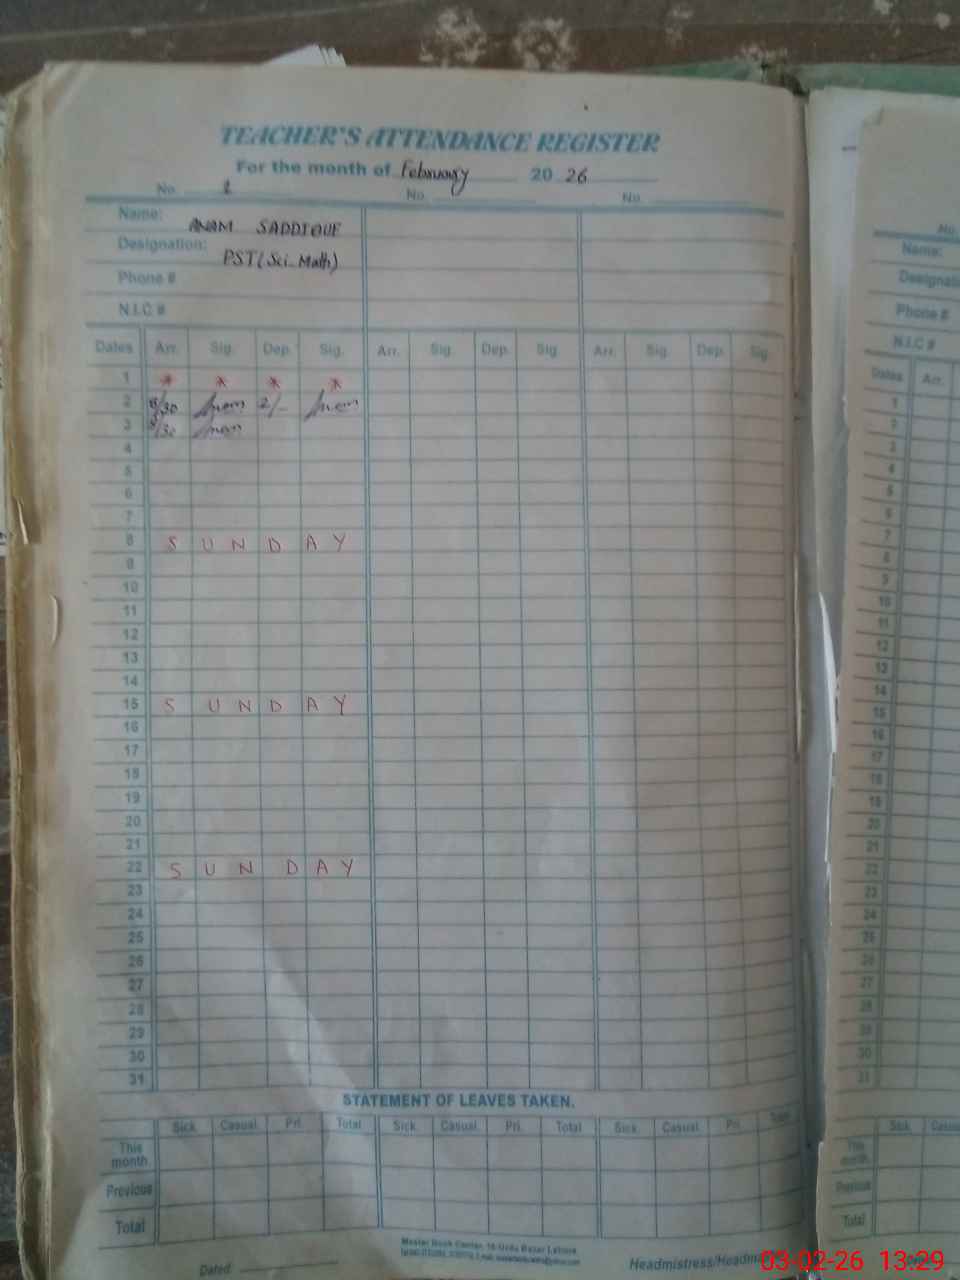 TEACHER'S ATTENDANCE REGISTER
For the month of February 2026
No. 1 No. No.
Name: ANAM SADDIQUE
Designation: PST(Sci-Math)
Phone #
N.I.C #
Dates Arr. Sig. Dep. Sig. Arr. Sig. Dep. Sig. Arr. Sig. Dep. Sig.
1 * * * *
2 8/30 Anam 2/- Anam
3 8/30 Anam
4
5
6
7
8 SUNDAY
9
10
11
12
13
14
15 SUNDAY
16
17
18
19
20
21
22 SUNDAY
23
24
25
26
27
28
29
30
31
STATEMENT OF LEAVES TAKEN.
Sick. Casual. Pri. Total Sick. Casual. Pri. Total Sick. Casual. Pri. Total
This month.
Previous
Total
Master Book Center, 16 Urdu Bazar Lahore
Dated: Headmistress/Headma
No.
Name:
Designati
Phone #
N.I.C #
Dates Arr.
1
2
3
4
5
6
7
8
9
10
11
12
13
14
15
16
17
18
19
20
21
22
23
24
25
26
27
28
29
30
31
Sick. Casu
This month.
Previous
Total
03-02-26 13:29